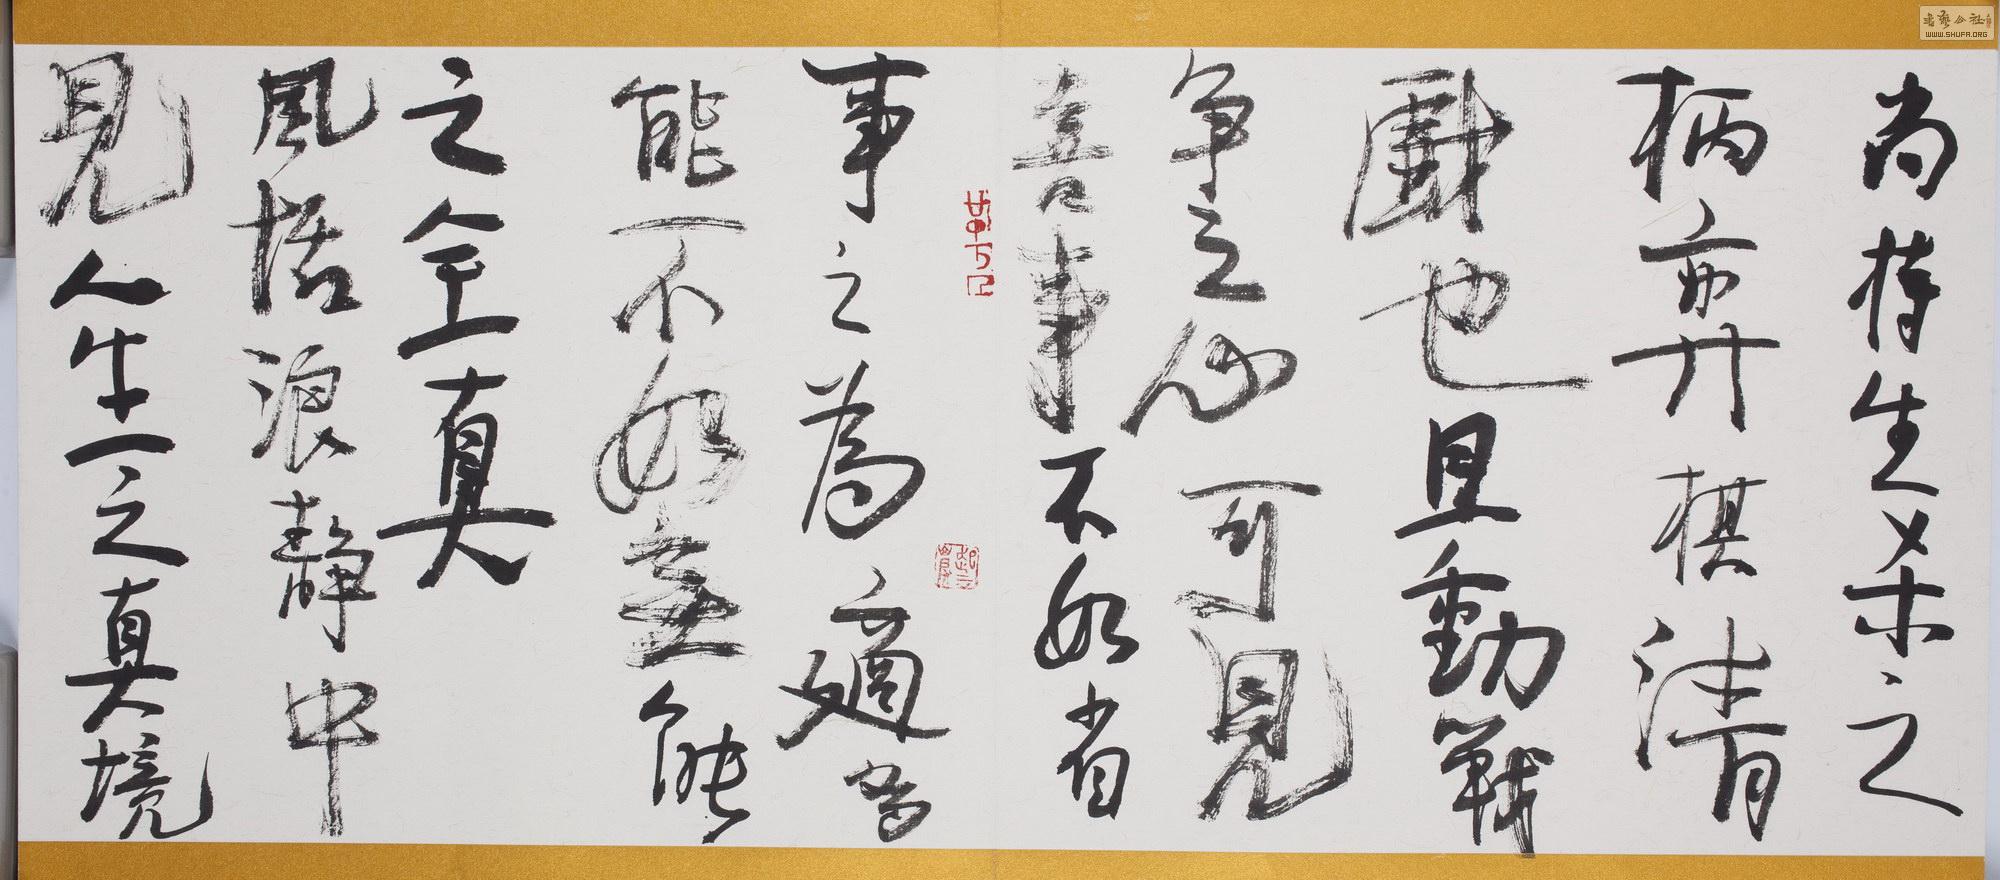 尚持生杀之
柄弈棋清
戲也且動戰
争之心可見
喜事不如省
事之為適多
能不如無能
之全真
風恬浪静中
見人生之真境
WWW.SHUFA.ORG